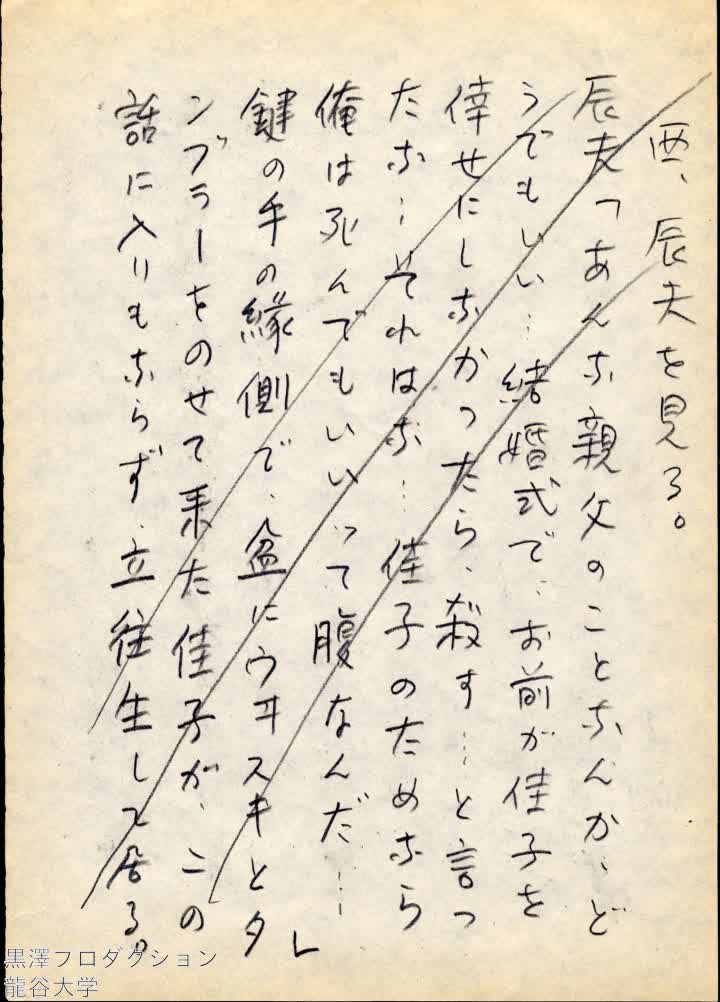 西、辰夫を見る。
辰夫「あんな親父のことなんか、ど
うでもいい…結婚式で、お前が佳子を
倖せにしなかったら、殺す…と言っ
たな…それはな…佳子のためなら
俺は死んでもいいって腹なんだ…」
鍵の手の縁側で、盆にウヰスキとタ
ンブラーをのせて来た佳子が、この
話に入りもならず、立往生して居る。
黒澤プロダクション
龍谷大学